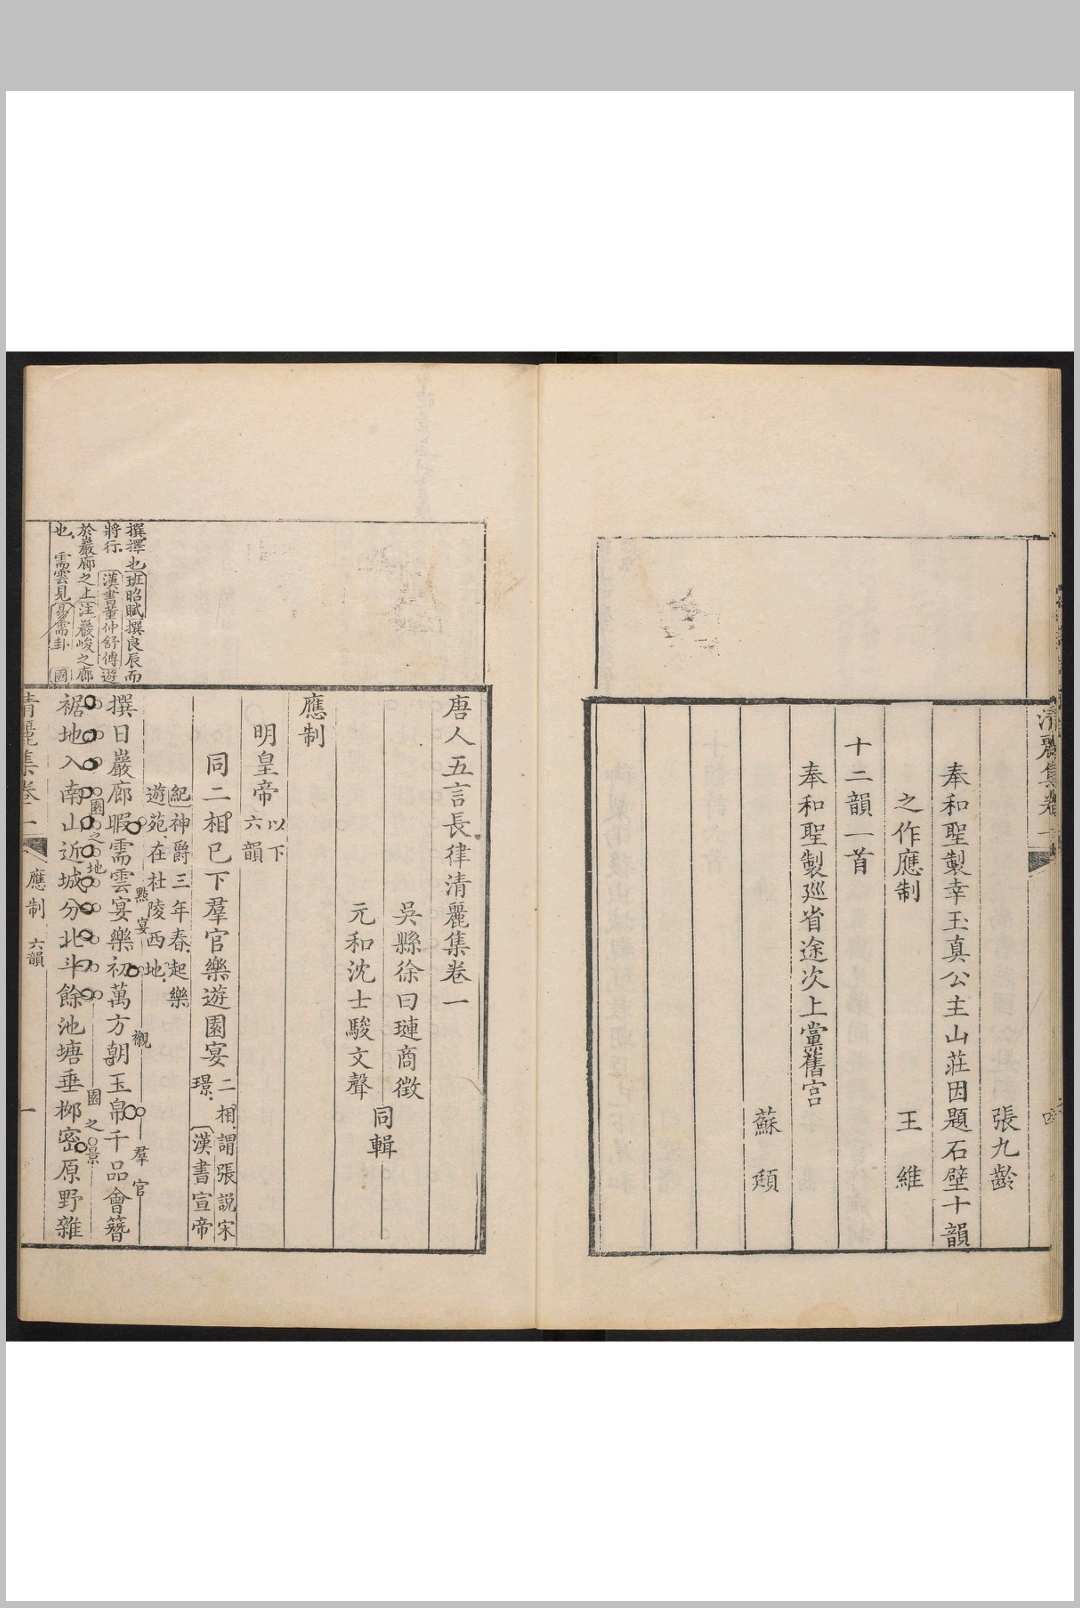 清麗集卷一
張九齡
奉和聖製幸玉真公主山莊因題石壁十韻
之作應制
王維
十二韻一首
奉和聖製廵省途次上黨舊宮
蘇頲
撰擇也班昭賦撰良辰而
將行漢書董仲舒傳遊
於巖廊之上注巖峻之廊
也需雲見易需卦
國
唐人五言長律清麗集卷一
吳縣徐曰璉商徵
元和沈士駿文聲
同輯
應制
明皇帝以下六韻
同二相已下羣官樂遊園宴二相謂張説宋璟漢書宣帝
紀神爵三年春起樂
遊苑在杜陵西地
點宴
襯
羣官
撰日巖廊暇需雲宴樂初萬方朝玉帛千品會簪
園之地
園之景
裾地入南山近城分北斗餘池塘垂柳密原野雜
清麗集卷一
應制
六韻
一